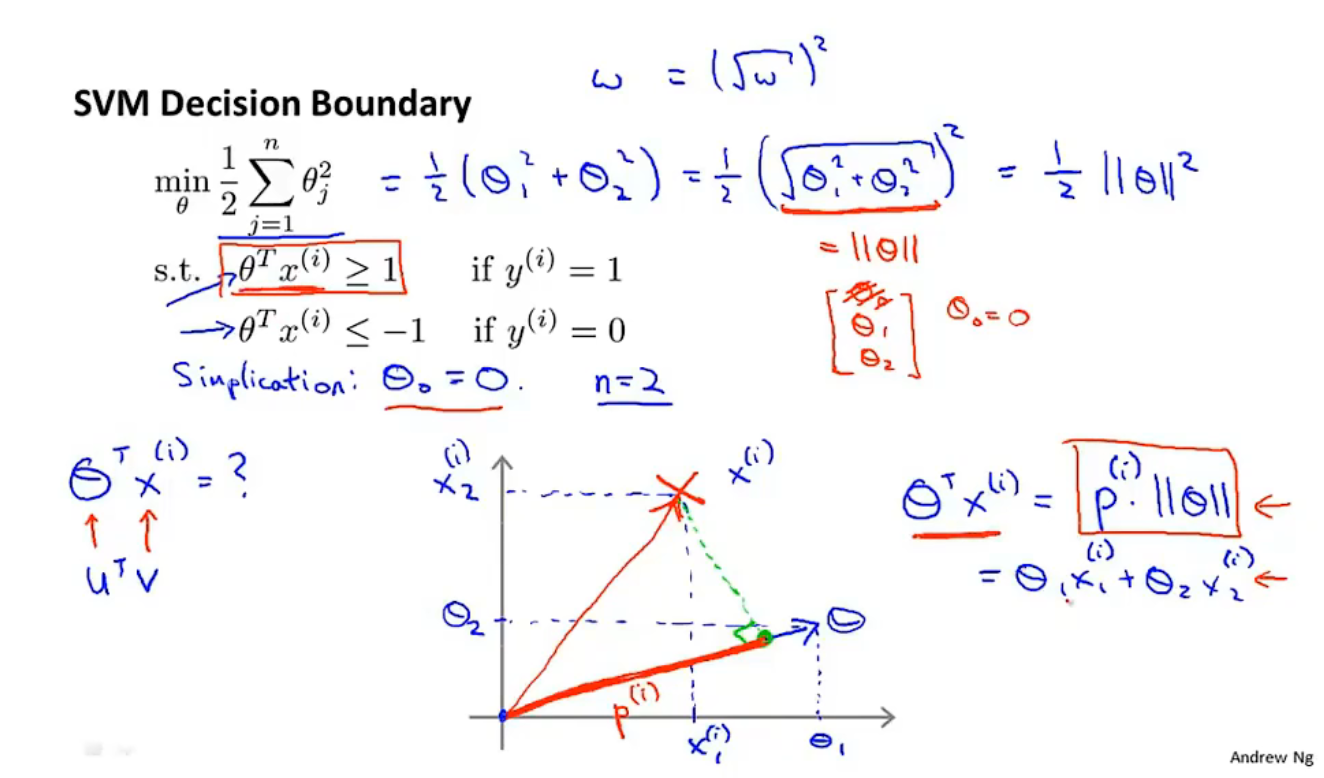 ω = (√ω)²
SVM Decision Boundary
min_θ 1/2 ∑_{j=1}^{n} θ_j² = 1/2 (Θ₁² + Θ₂²) = 1/2 (√(Θ₁² + Θ₂²))² = 1/2 ||Θ||²
= ||Θ||
s.t. θ^T x^{(i)} ≥ 1 if y^{(i)} = 1
→ θ^T x^{(i)} ≤ −1 if y^{(i)} = 0
[Θ₀ Θ₁ Θ₂] Θ₀ = 0
Sinplication: Θ₀ = 0. n=2
Θ^T x^{(i)} = ?
↑ ↑
u^T v
x₂^{(i)} x^{(i)}
Θ₂ Θ
p^{(i)}
x₁^{(i)} Θ₁
Θ^T x^{(i)} = p^{(i)} · ||Θ|| ←
= Θ₁ x₁^{(i)} + Θ₂ x₂^{(i)} ←
Andrew Ng